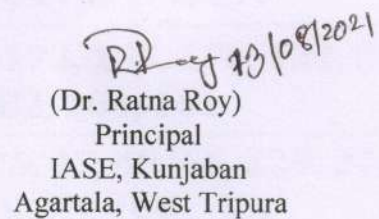 R.Roy 13/08/2021
(Dr. Ratna Roy)
Principal
IASE, Kunjaban
Agartala, West Tripura